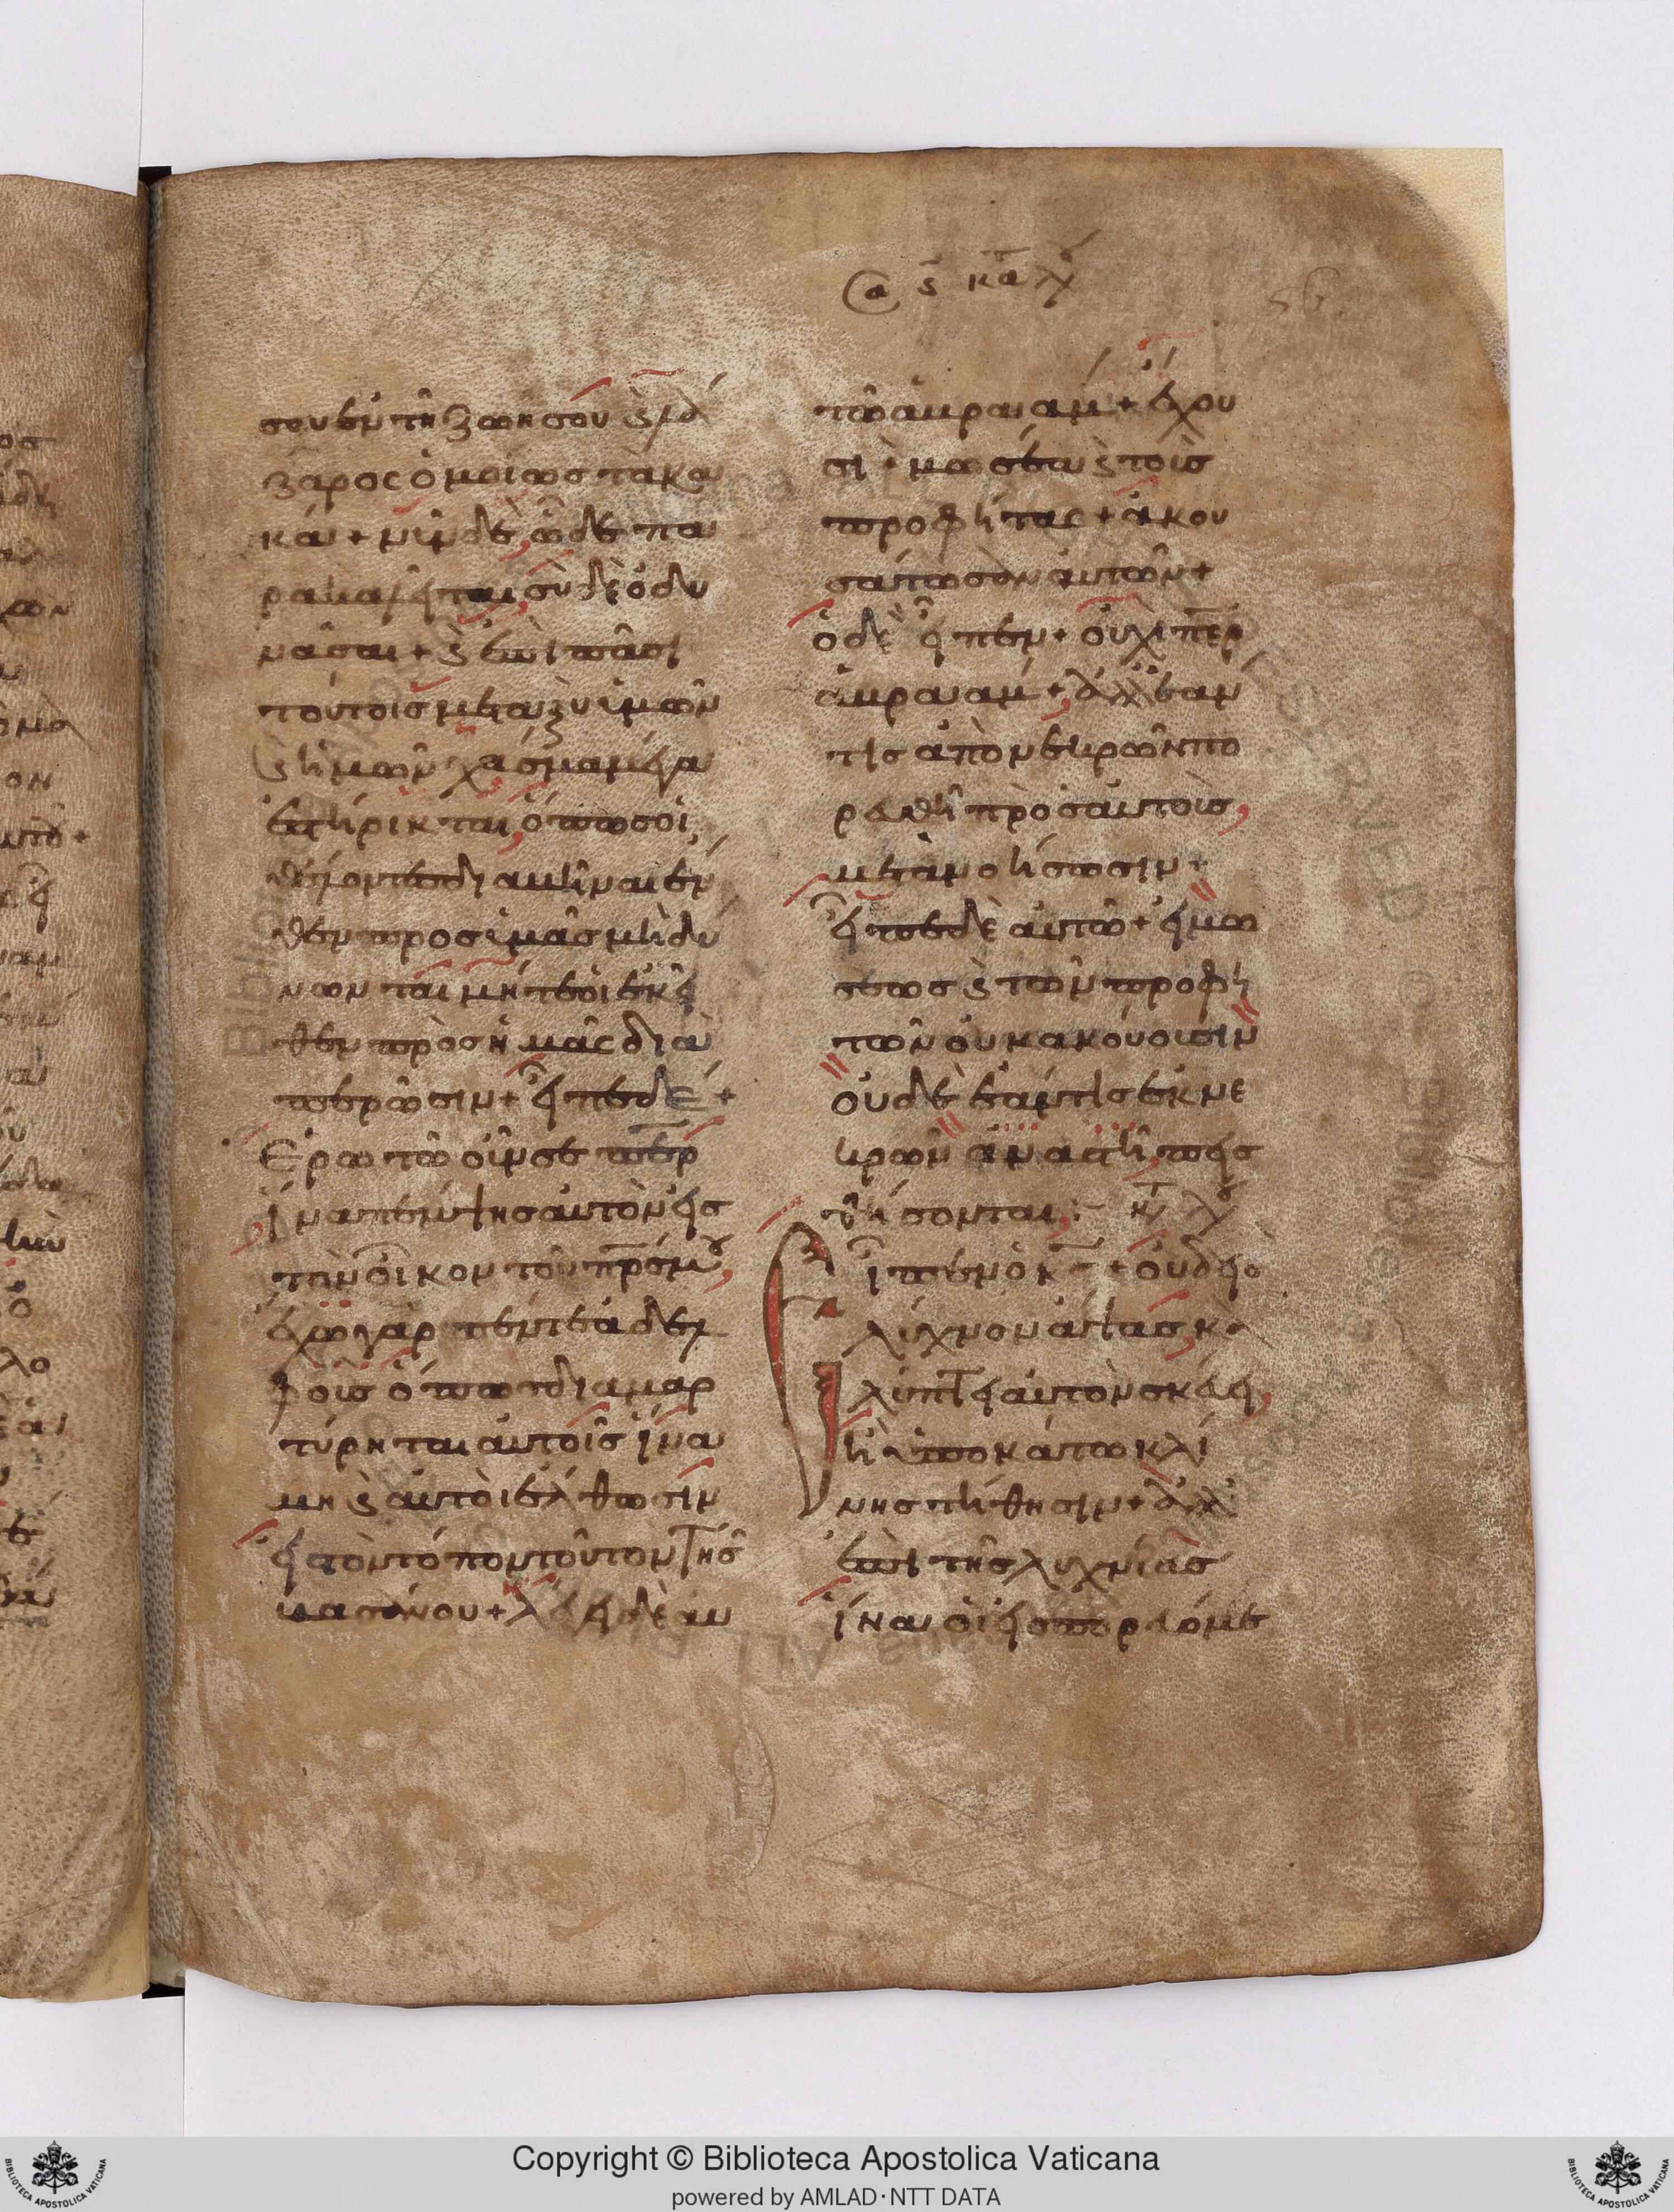 σου ἐν τῆ ζωῆ σου ϗ λά
ζαρος ὁμοίως τὰ κα
κά + νῦν δὲ ὧδε πα
ρακαλεῖται, σὺ δὲ ὀδυ
νᾶσαι + ϗ ἐπὶ πᾶσι
τούτοις μεταξὺ ὑμῶν
ϗ ἡμῶν χάσμα μέγα
ἐστήρικται, ὅπως οἱ
θέλοντες διαβῆναι ἔν
θεν προς ὑμᾶς μὴ δύ
νωνται μήτε οἱ ἐκεῖ
θεν πρὸς ἡμᾶς δια
περῶσιν + εἶπε δέ +
Ἐρωτῶ οὖν σε περ
ἵνα πέμψης αὐτὸν εἰς
τὸν οἶκον τοῦ πρσ μου,
ἔχω γὰρ πέντε ἀδελ
φοὺς ὅπως διαμαρ
τύρηται αὐτοῖς ἵνα
μὴ ϗ αὐτοὶ ἔλθωσιν
εἰς τὸν τόπον τοῦτον τῆς
βασάνου + λέγει δὲ αυ
ϗ κα λου
τῶ ἀβρααμ + ἔχου
σι + μωσέα ϗ τοὺς
προφήτας + ἀκου
σάτωσαν αὐτῶν +
ὁ δὲ εἶπεν + οὐχὶ περ
ἀβρααμ +, ἀλλ' ἐάν
τις ἀπὸ νεκρῶν πο
ρευθῆ πρὸς αὐτοὺς,
μετανοήσωσιν +
εἶπε δὲ αὐτῶ + εἰ μω
σέως ϗ τῶν προφη
τῶν οὐκ ἀκούουσιν
οὐδὲ ἐάν τις ἐκ νε
κρῶν ἀναστῆ, πεις
θήσονται,
Εἶπεν ὁ κς + οὐδεὶς
λύχνον ἅψας, κα
λύπτει αὐτὸν σκεύει,
ἢ ὑποκάτω κλί
νης τίθησιν + ἀλλ'
ἐπὶ τῆς λυχνίας
ἵνα οἱ εἰσπορευόμε
Copyright © Biblioteca Apostolica Vaticana
powered by AMLAD·NTT DATA